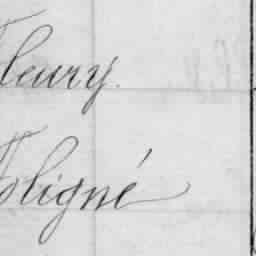 Fleury.
Foligné